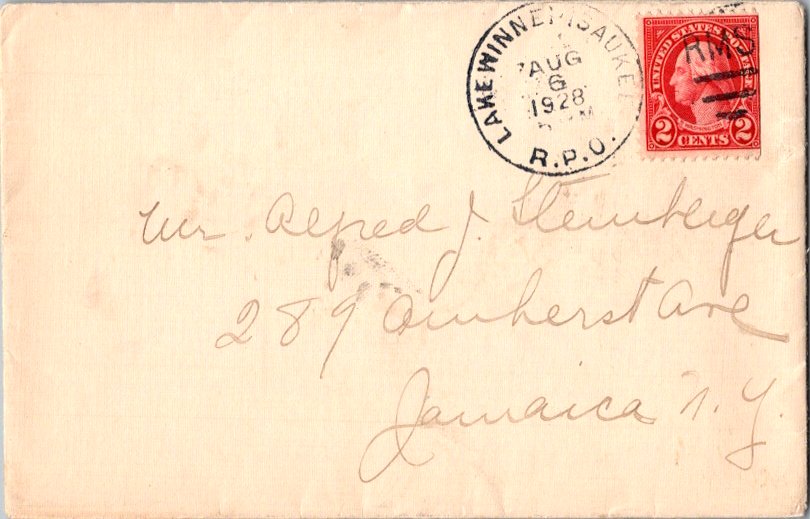 LAKE WINNEPISAUKEE
AUG
6
1928
R.P.O.
RMS
UNITED STATES POSTAGE
2 CENTS 2
Mr. Alfred J. Steinberger
289 Amherst Ave
Jamaica N.Y.